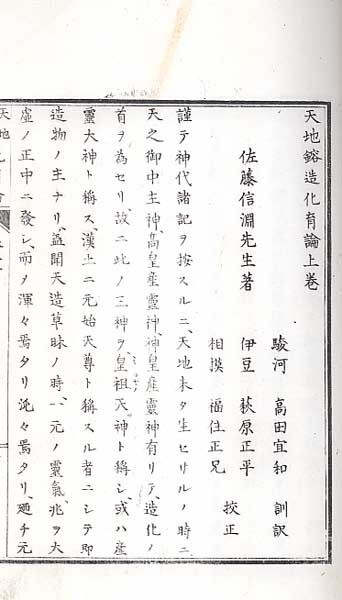 天地鎔造化育論上卷
佐藤信淵先生著
駿河 高田宜和 訓訳
伊豆 萩原正平
相摸 福住正兄 挍正
謹テ神代諸記ヲ按スルニ、天地未タ生セサルノ時ニ
天之御中主神、高皇産靈神、神皇産靈神有リテ、造化ノ
首ヲ為セリ、故ニ此ノ三神ヲ、皇祖天神ト稱シ、或ハ産
靈大神ト稱ス、漢土ニ元始天尊ト稱スル者ニシテ即
造物ノ主ナリ、蓋聞天造草昧ノ時、一元ノ靈氣、兆ヲ大
虚ノ正中ニ發シ、而ヲ渾々焉タリ沌々焉タリ、廼チ元